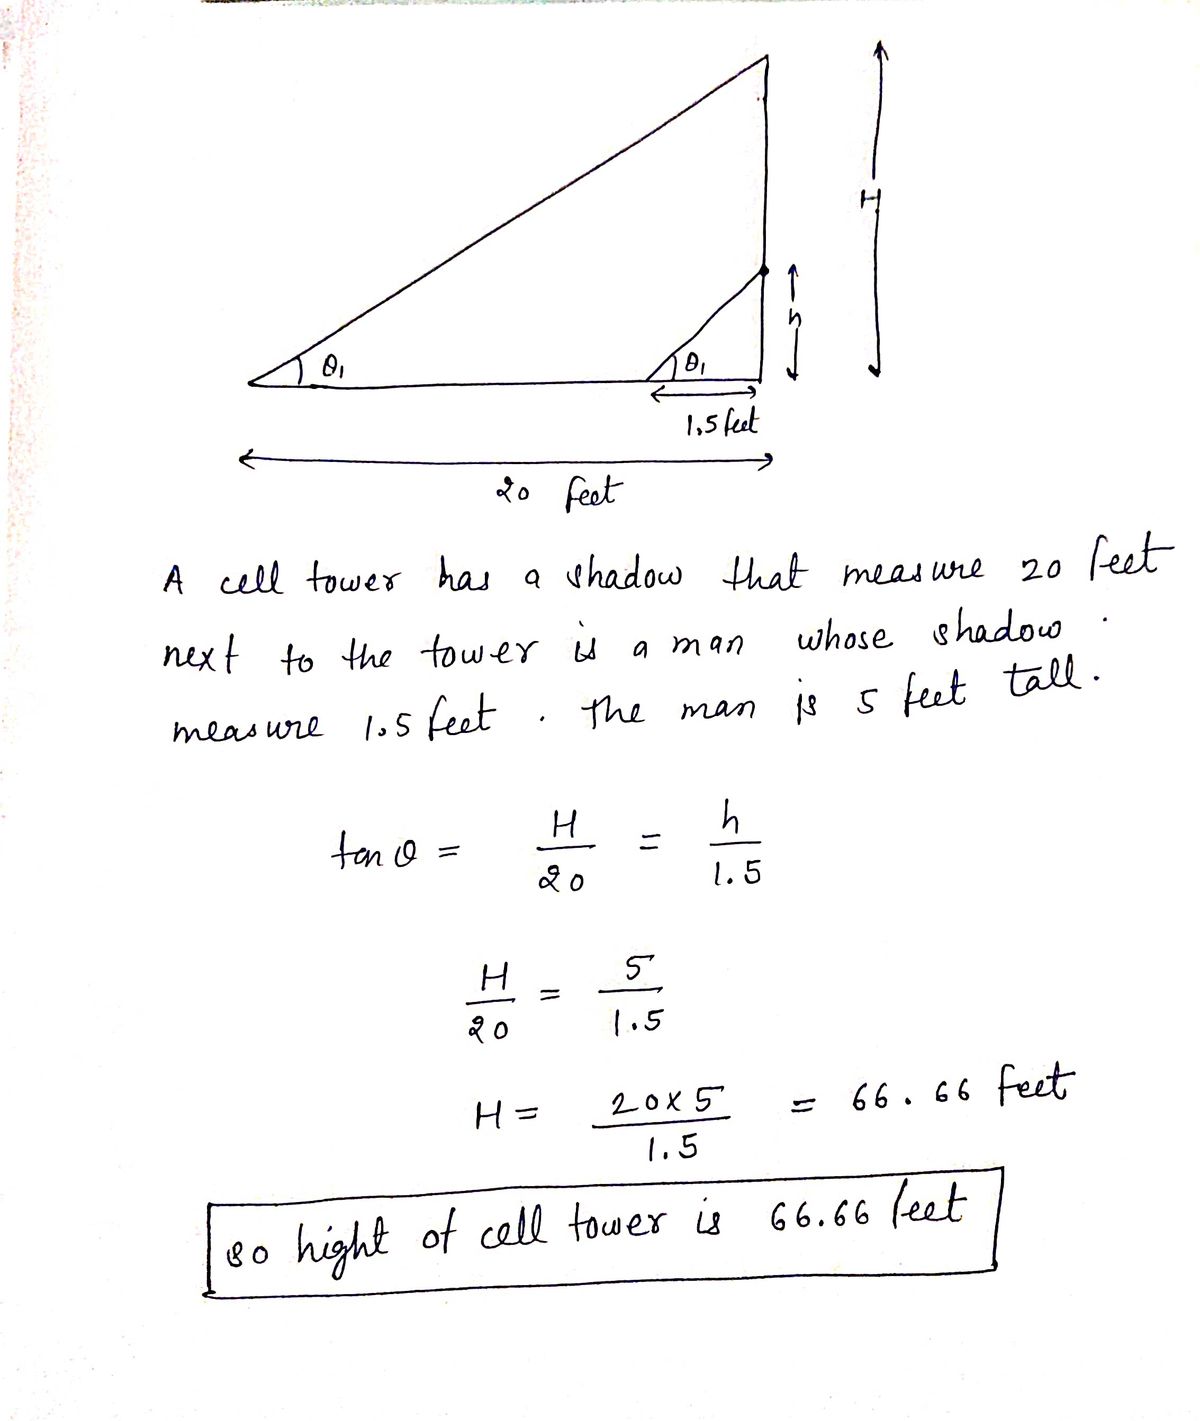 H
h
θ1
θ1
1.5 feet
20 feet
A cell tower has a shadow that measure 20 feet
next to the tower is a man whose shadow .
measure 1.5 feet . The man is 5 feet tall.
tan θ = H/20 = h/1.5
H/20 = 5/1.5
H = 20x5/1.5 = 66.66 feet
so hight of cell tower is 66.66 feet